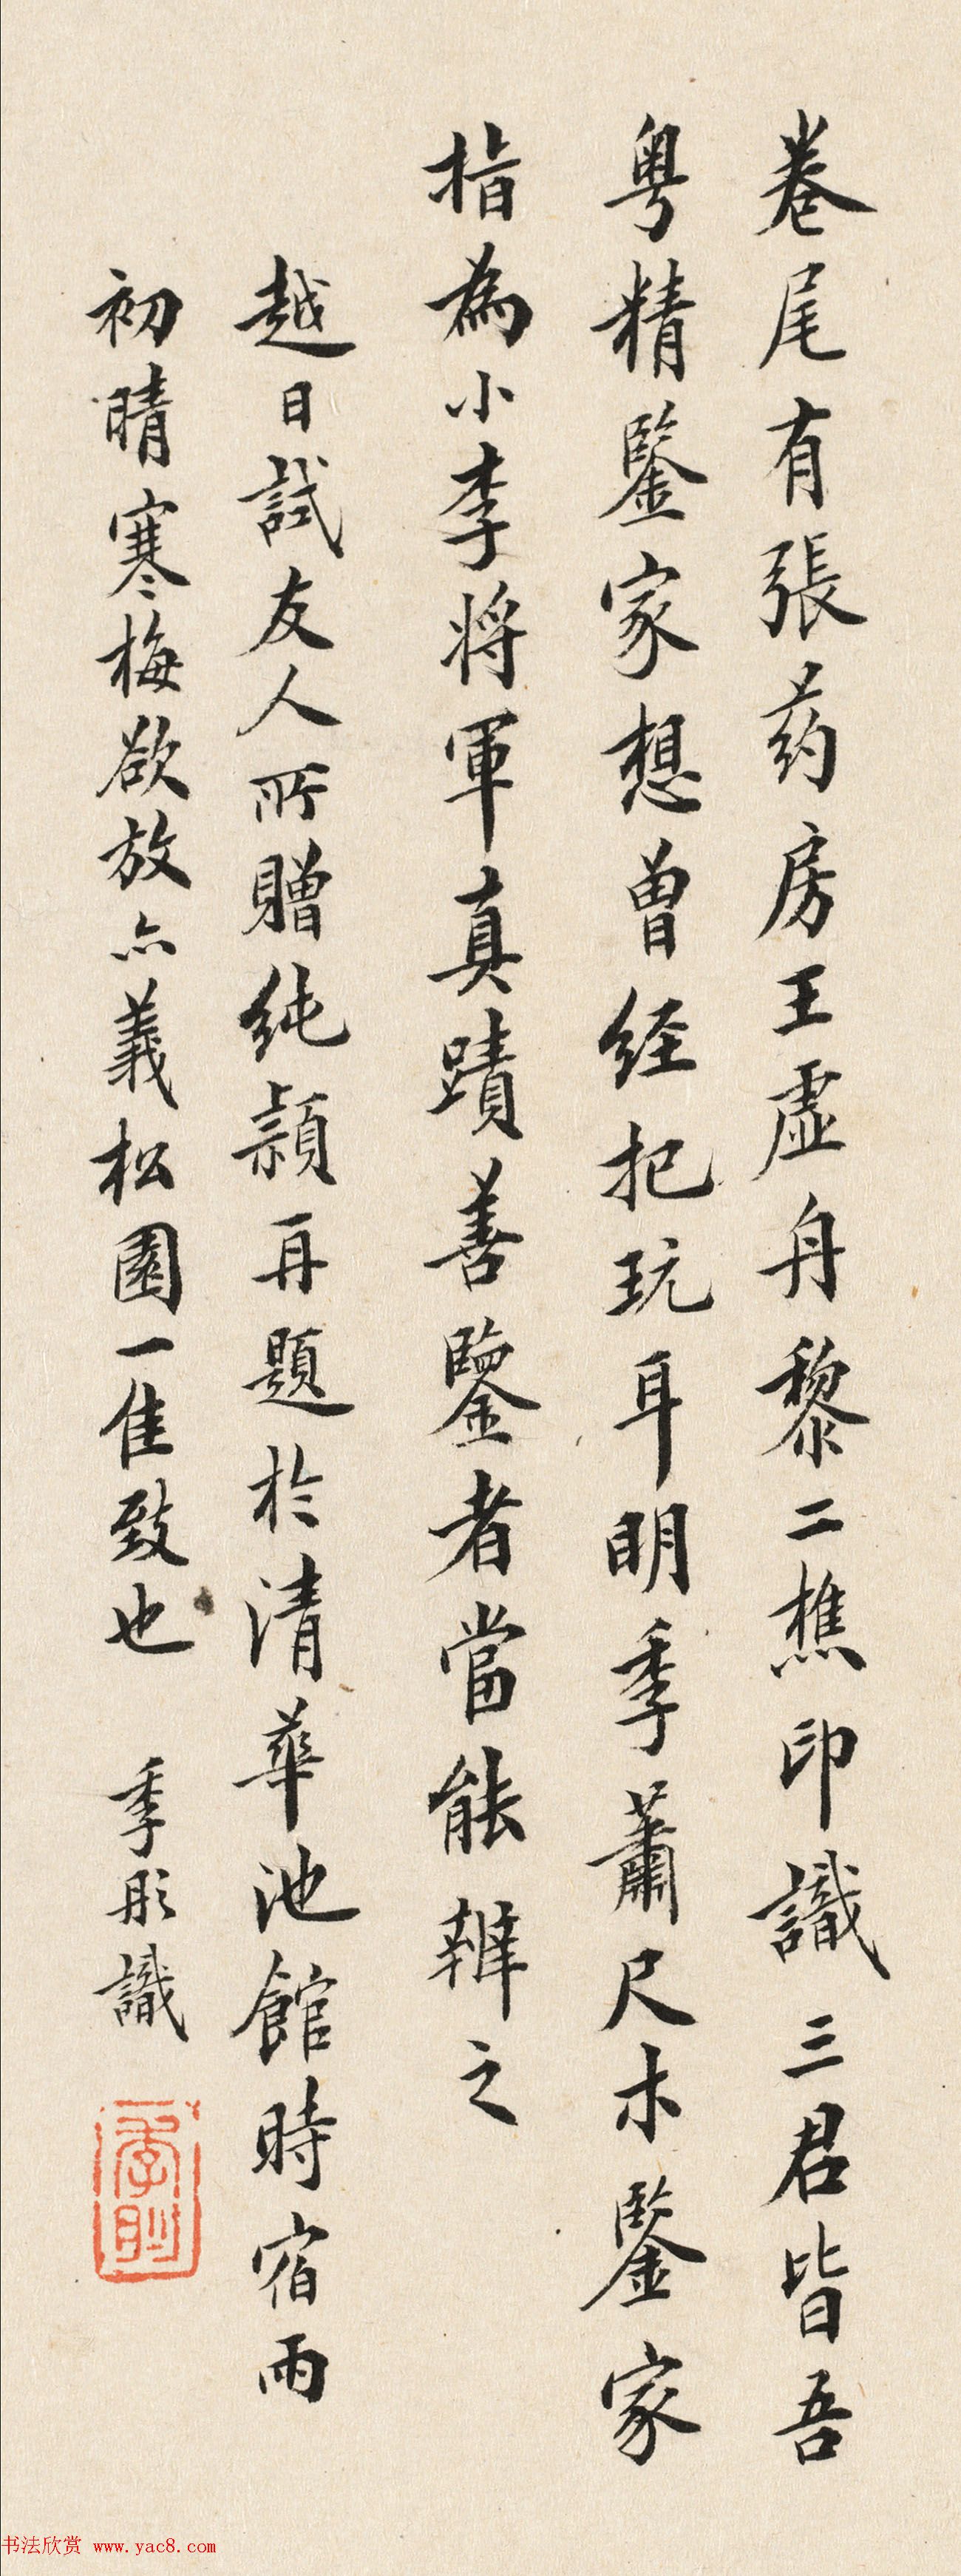 卷尾有張药房王虛舟黎二樵印識三君皆吾
粵精鑒家想曾經把玩耳明季蕭尺木鑒家
指為小李將軍真蹟善鑒者當能辨之
越日試友人所贈純穎再題於清華池館時宿雨
初晴寒梅欲放亦義松園一佳致也 季彤識
書法欣赏 www.yac8.com